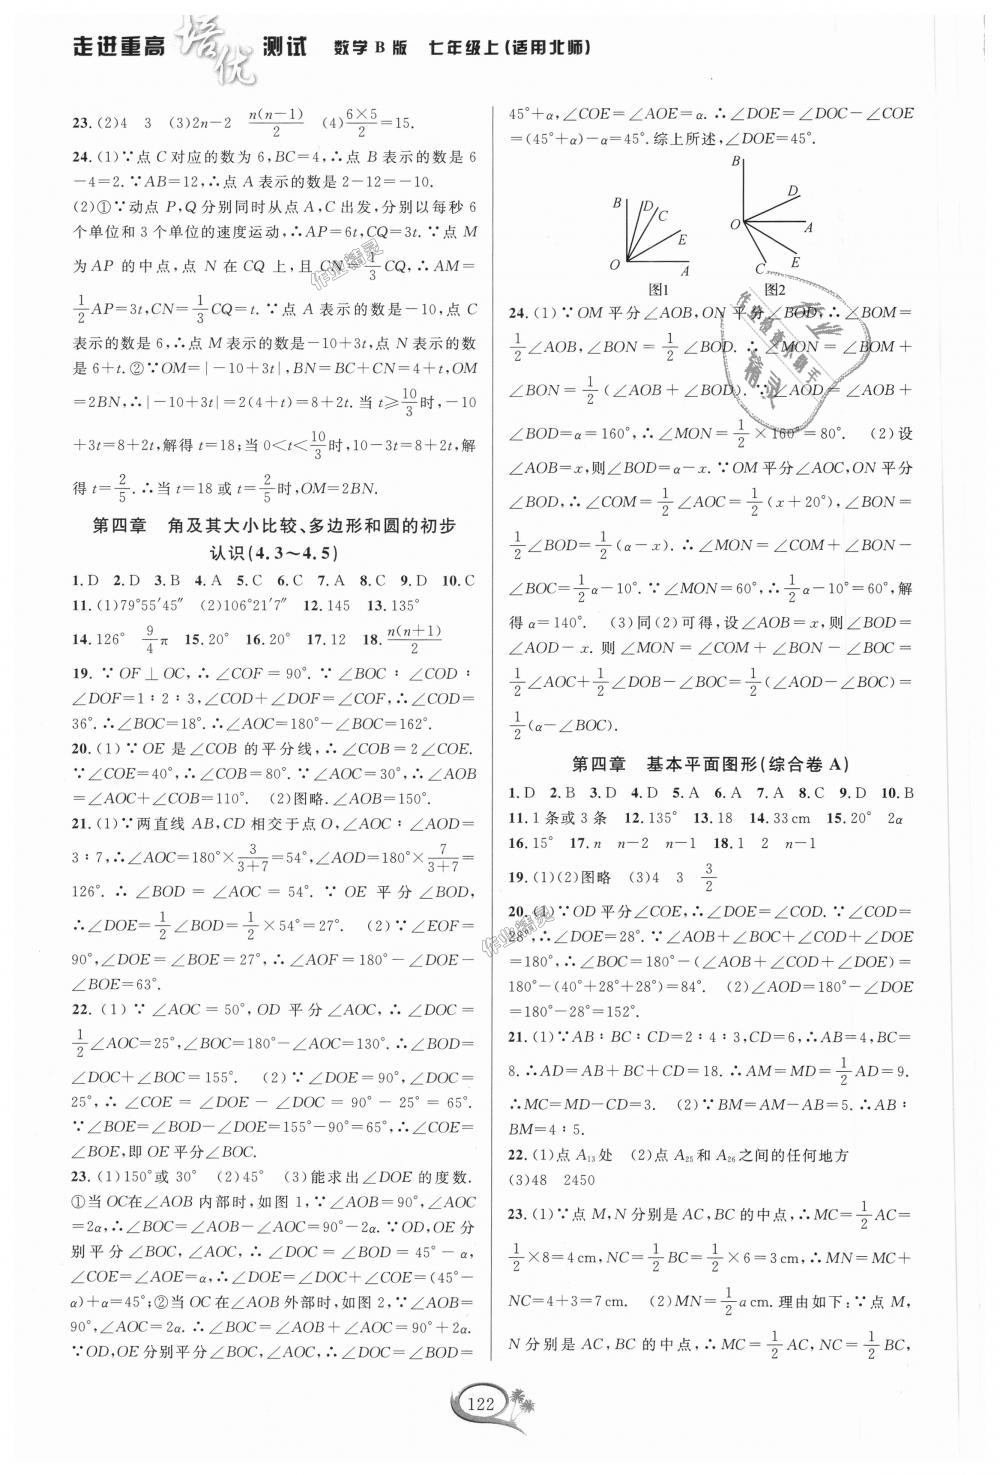 走进重高 培优 测试 数学 B 版 七年级上(适用北师)
23.(2)4 3 (3)2n－2 n(n－1)/2 (4)6×5/2=15.
24.(1)∵点 C 对应的数为 6,BC=4,∴点 B 表示的数是 6
－4=2.∵AB=12,∴点 A 表示的数是 2－12=－10.
(2)①∵动点 P,Q 分别同时从点 A,C 出发,分别以每秒 6
个单位和 3 个单位的速度运动,∴AP=6t,CQ=3t.∵点 M
为 AP 的中点,点 N 在 CQ 上,且 CN=1/3CQ,∴AM=
1/2AP=3t,CN=1/3CQ=t.∵点 A 表示的数是－10,点 C
表示的数是 6,∴点 M 表示的数是－10+3t,点 N 表示的数
是 6+t.②∵OM=|－10+3t|,BN=BC+CN=4+t,OM
=2BN,∴|－10+3t|=2(4+t)=8+2t.当 t≥10/3时,－10
+3t=8+2t,解得 t=18;当 0<t<10/3时,10－3t=8+2t,解
得 t=2/5.∴当 t=18 或 t=2/5时,OM=2BN.
第四章 角及其大小比较、多边形和圆的初步
认识(4.3～4.5)
1.D 2.D 3.B 4.A 5.C 6.C 7.A 8.C 9.D 10.C
11.(1)79°55′45″ (2)106°21′7″ 12.145 13.135°
14.126° 9/4π 15.20° 16.20° 17.12 18.n(n+1)/2
19.∵OF⊥OC,∴∠COF=90°.∵∠BOC∶∠COD∶
∠DOF=1∶2∶3,∠COD+∠DOF=∠COF,∴∠COD=
36°.∴∠BOC=18°.∴∠AOC=180°－∠BOC=162°.
20.(1)∵OE 是∠COB 的平分线,∴∠COB=2∠COE.
∵∠COE=40°,∴∠COB=80°.∵∠AOC=30°,∴∠AOB
=∠AOC+∠COB=110°. (2)图略.∠AOB=150°.
21.(1)∵两直线 AB,CD 相交于点 O,∠AOC∶∠AOD=
3∶7,∴∠AOC=180°×3/(3+7)=54°,∠AOD=180°×7/(3+7)=
126°.∴∠BOD=∠AOC=54°.∵OE 平分∠BOD,
∴∠DOE=1/2∠BOD=1/2×54°=27°. (2)∵∠EOF=
90°,∠DOE=∠BOE=27°,∴∠AOF=180°－∠DOE－
∠BOE=63°.
22.(1)∵∠AOC=50°,OD 平分∠AOC,∴∠DOC=
1/2∠AOC=25°,∠BOC=180°－∠AOC=130°.∴∠BOD=
∠DOC+∠BOC=155°. (2)∵∠DOE=90°,∠DOC=
25°,∴∠COE=∠DOE－∠DOC=90°－25°=65°.
∵∠BOE=∠BOD－∠DOE=155°－90°=65°,∴∠COE=
∠BOE,即 OE 平分∠BOC.
23.(1)150°或 30° (2)45° (3)能求出∠DOE 的度数.
①当 OC在∠AOB 内部时,如图 1,∵∠AOB=90°,∠AOC
=2α,∴∠BOC=∠AOB－∠AOC=90°－2α.∵OD,OE 分
别平分∠BOC,∠AOC,∴∠DOC=∠BOD=45°－α,
∠COE=∠AOE=α,∴∠DOE=∠DOC+∠COE=(45°－
α)+α=45°;②当 OC在∠AOB 外部时,如图 2,∵∠AOB=
90°,∠AOC=2α.∴∠BOC=∠AOB+∠AOC=90°+2α.
∵OD,OE分别平分∠BOC,∠AOC,∴∠DOC=∠BOD=
45°+α,∠COE=∠AOE=α.∴∠DOE=∠DOC－∠COE
=(45°+α)－α=45°.综上所述,∠DOE=45°.
B D C E O A
图1
B D O A E C
图2
24.(1)∵OM 平分∠AOB,ON 平分∠BOD,∴∠BOM=
1/2∠AOB,∠BON=1/2∠BOD.∴∠MON=∠BOM+
∠BON=1/2(∠AOB+∠BOD).∵∠AOD=∠AOB+
∠BOD=α=160°,∴∠MON=1/2×160°=80°. (2)设
∠AOB=x,则∠BOD=α－x.∵OM 平分∠AOC,ON 平分
∠BOD,∴∠COM=1/2∠AOC=1/2(x+20°),∠BON=
1/2∠BOD=1/2(α－x).∴∠MON=∠COM+∠BON－
∠BOC=1/2α－10°.∵∠MON=60°,∴1/2α－10°=60°,解
得 α=140°. (3)同(2)可得,设∠AOB=x,则∠BOD=
∠AOD－x.则∠MON=∠COM+∠BON－∠BOC=
1/2∠AOC+1/2∠DOB－∠BOC=1/2(∠AOD－∠BOC)=
1/2(α－∠BOC).
第四章 基本平面图形(综合卷 A)
1.D 2.B 3.D 4.D 5.A 6.A 7.A 8.C 9.D 10.B
11.1 条或 3 条 12.135° 13.18 14.33 cm 15.20° 2α
16.15° 17.n n－2 n－1 18.1 2 n－1
19.(1)(2)图略 (3)4 3 3/2
20.(1)∵OD平分∠COE,∴∠DOE=∠COD.∵∠COD=
28°,∴∠DOE=28°.∵∠AOB+∠BOC+∠COD+∠DOE
=180°,∴∠BOC=180°－(∠AOB+∠COD+∠DOE)=
180°－(40°+28°+28°)=84°. (2)∠AOD=180°－∠DOE
=180°－28°=152°.
21.(1)∵AB∶BC∶CD=2∶4∶3,CD=6,∴AB=4,BC=
8.∴AD=AB+BC+CD=18.∴AM=MD=1/2AD=9.
∴MC=MD－CD=3. (2)∵BM=AM－AB=5.∴AB∶
BM=4∶5.
22.(1)点 A₁₃处 (2)点 A₂₅和 A₂₆之间的任何地方
(3)48 2450
23.(1)∵点 M,N 分别是 AC,BC 的中点,∴MC=1/2AC=
1/2×8=4 cm,NC=1/2BC=1/2×6=3 cm,∴MN=MC+
NC=4+3=7 cm. (2)MN=1/2a cm.理由如下:∵点 M,
N 分别是 AC,BC 的中点,∴MC=1/2AC,NC=1/2BC,
122
作业精灵
作业检查小帮手
作业精灵
作业精灵